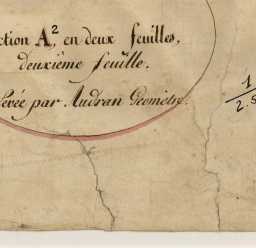 ction A², en deux feuilles,
deuxième feuille.
levée par Audran Géomètre.
1
2.5